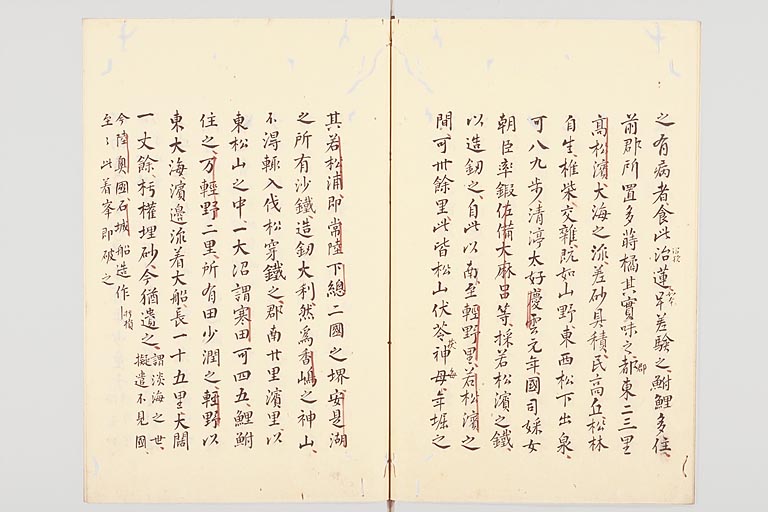 之有病者食此沼蓮早差験之鮒鯉多住
前郡所置多蒔橘其實味之都東二三里
高松濱大海之流差砂貝積民高丘松林
自生椎柴交雜既如山野東西松下出泉
可八九歩清渟太好慶雲元年國司婇女
朝臣率鍜佐備大麻呂等採若松濱之鐵
以造劔之自此以南至輕野里若松濱之
間可卅餘里此皆松山伏苓神毎年堀之
其若松浦即常陸下總二國之堺安是湖
之所有沙鐵造劔大利然為香嶋之神山
不得輙入伐松穿鐵之郡南廿里濱里以
東松山之中一大沼謂寒田可四五鯉鮒
住之万輕野二里所有田少潤之輕野以
東大海濱邊流着大船長一十五里大闊
一丈餘朽櫂埋砂今猶遺之謂淡海之世擬遣不見國
今陸奥國石城船造作
至〻此着岸即破之